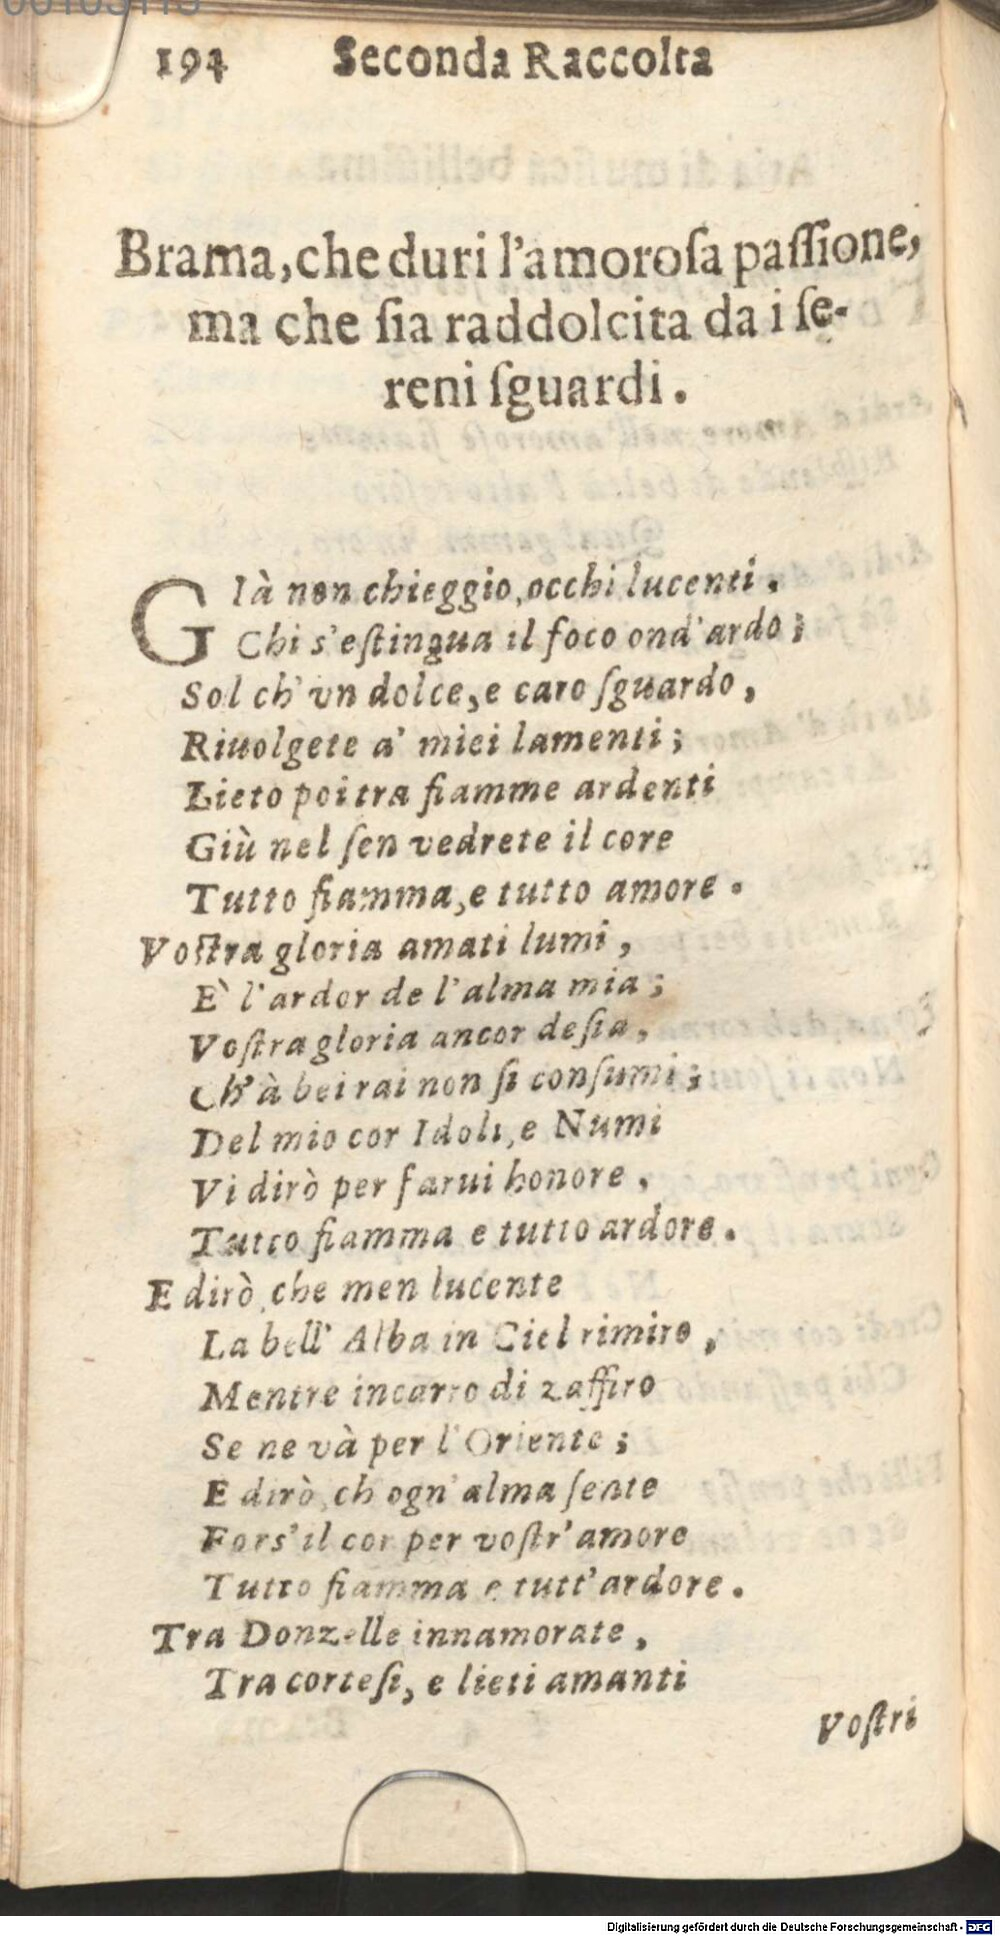 194 Seconda Raccolta
Brama, che duri l'amoroſa paſſione,
ma che ſia raddolcita da i ſe-
reni ſguardi.
Già non chieggio, occhi lucenti.
Chi s'eſtingua il foco ond'ardo;
Sol ch'vn dolce, e caro ſguardo,
Riuolgete a' miei lamenti;
Lieto poi tra fiamme ardenti
Giù nel ſen vedrete il core
Tutto fiamma, e tutto amore.
Voſtra gloria amati lumi,
E' l'ardor de l'alma mia;
Voſtra gloria ancor deſia,
Ch'à bei rai non ſi conſumi;
Del mio cor Idoli, e Numi
Vi dirò per farui honore,
Tutto fiamma e tutto ardore.
E dirò, che men lucente
La bell' Alba in Ciel rimiro,
Mentre in carro di zaffiro
Se ne và per l'Oriente;
E dirò, ch'ogn'alma ſente
Fors'il cor per voſtr'amore
Tutto fiamma e tutt'ardore.
Tra Donzelle innamorate,
Tra corteſi, e lieti amanti
Voſtri
Digitalisierung gefördert durch die Deutsche Forschungsgemeinschaft - DFG